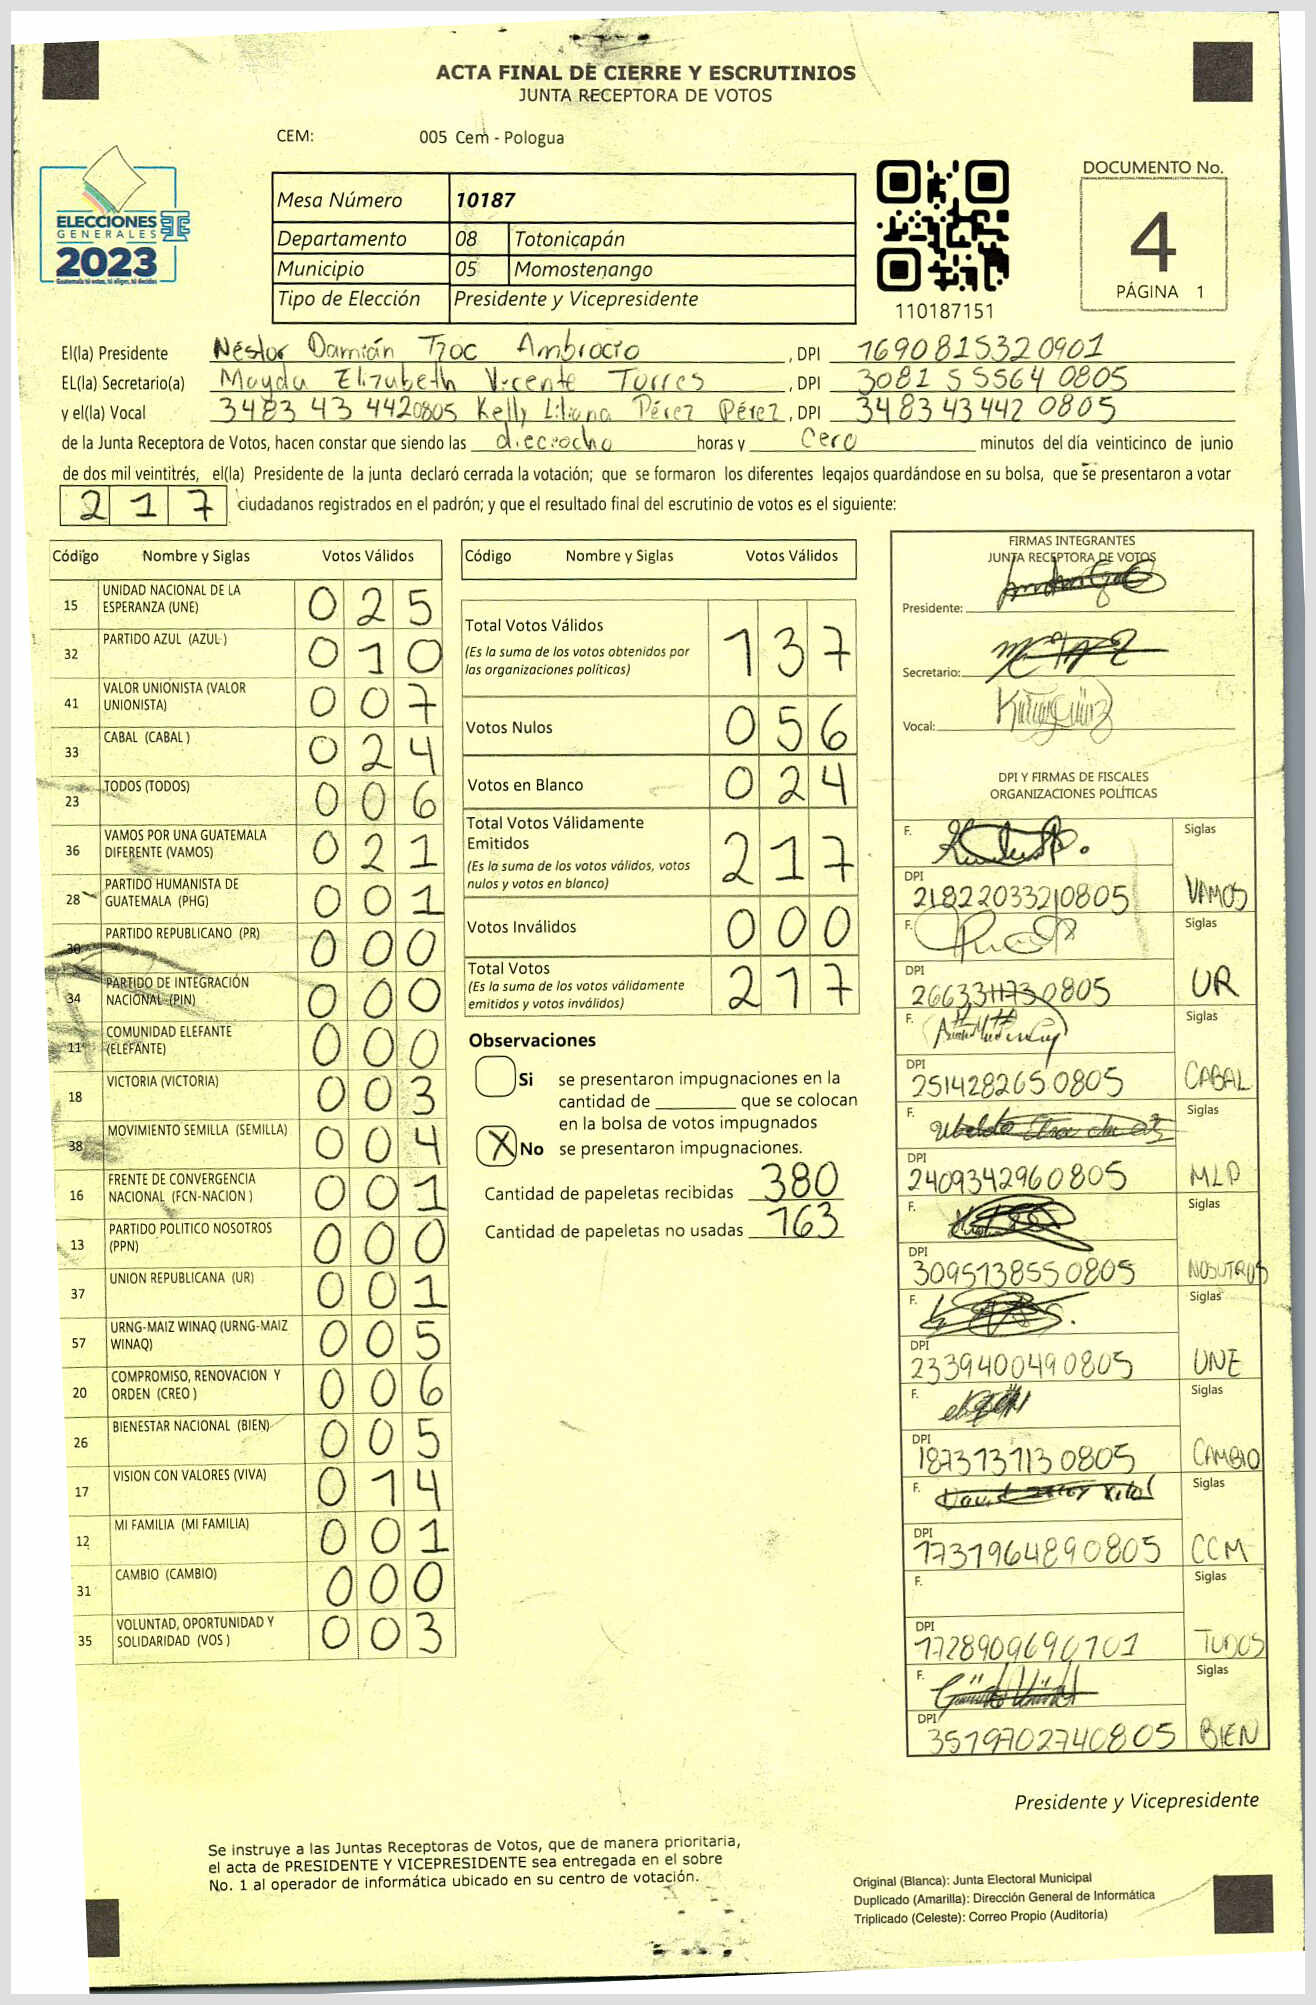 ACTA FINAL DE CIERRE Y ESCRUTINIOS
JUNTA RECEPTORA DE VOTOS
CEM: 005 Cem - Pologua
ELECCIONES
GENERALES
2023
Guatemala tú votas, tú eliges, tú decides
Mesa Número 10187
Departamento 08 Totonicapán
Municipio 05 Momostenango
Tipo de Elección Presidente y Vicepresidente
110187151
DOCUMENTO No.
4
PÁGINA 1
El(la) Presidente Néstor Damián Tzoc Ambrocio, DPI 1690815320901
EL(la) Secretario(a) Mayda Elizabeth Vicente Torres, DPI 3081 55564 0805
y el(la) Vocal 3483 43 4420805 Kelly Liliana Pérez Pérez, DPI 348343442 0805
de la Junta Receptora de Votos, hacen constar que siendo las dieciocho horas y Cero minutos del día veinticinco de junio
de dos mil veintitrés, el(la) Presidente de la junta declaró cerrada la votación; que se formaron los diferentes legajos guardándose en su bolsa, que se presentaron a votar
217 ciudadanos registrados en el padrón; y que el resultado final del escrutinio de votos es el siguiente:
Código Nombre y Siglas Votos Válidos
15 UNIDAD NACIONAL DE LA ESPERANZA (UNE) 025
32 PARTIDO AZUL (AZUL) 010
41 VALOR UNIONISTA (VALOR UNIONISTA) 007
33 CABAL (CABAL ) 024
23 TODOS (TODOS) 006
36 VAMOS POR UNA GUATEMALA DIFERENTE (VAMOS) 021
28 PARTIDO HUMANISTA DE GUATEMALA (PHG) 001
30 PARTIDO REPUBLICANO (PR) 000
34 PARTIDO DE INTEGRACIÓN NACIONAL (PIN) 000
11 COMUNIDAD ELEFANTE (ELEFANTE) 000
18 VICTORIA (VICTORIA) 003
38 MOVIMIENTO SEMILLA (SEMILLA) 004
16 FRENTE DE CONVERGENCIA NACIONAL (FCN-NACION ) 001
13 PARTIDO POLITICO NOSOTROS (PPN) 000
37 UNION REPUBLICANA (UR) 001
57 URNG-MAIZ WINAQ (URNG-MAIZ WINAQ) 005
20 COMPROMISO, RENOVACION Y ORDEN (CREO ) 006
26 BIENESTAR NACIONAL (BIEN) 005
17 VISION CON VALORES (VIVA) 014
12 MI FAMILIA (MI FAMILIA) 001
31 CAMBIO (CAMBIO) 000
35 VOLUNTAD, OPORTUNIDAD Y SOLIDARIDAD (VOS ) 003
Código Nombre y Siglas Votos Válidos
Total Votos Válidos 137
(Es la suma de los votos obtenidos por
las organizaciones políticas)
Votos Nulos 056
Votos en Blanco 024
Total Votos Válidamente
Emitidos 217
(Es la suma de los votos válidos, votos
nulos y votos en blanco)
Votos Inválidos 000
Total Votos 217
(Es la suma de los votos válidamente
emitidos y votos inválidos)
Observaciones
Si se presentaron impugnaciones en la
cantidad de ________ que se colocan
en la bolsa de votos impugnados
X No se presentaron impugnaciones.
Cantidad de papeletas recibidas 380
Cantidad de papeletas no usadas 163
FIRMAS INTEGRANTES
JUNTA RECEPTORA DE VOTOS
Presidente:
Secretario:
Vocal:
DPI Y FIRMAS DE FISCALES
ORGANIZACIONES POLÍTICAS
F. Siglas
DPI 2182203320805 VAMOS
F. Siglas
DPI 2663311730805 UR
F. Siglas
DPI 2514282650805 CABAL
F. Siglas
DPI 2409342960805 MLP
F. Siglas
DPI 3095138550805 NOSOTROS
F. Siglas
DPI 2339400490805 UNE
F. Siglas
DPI 1873731130805 CAMBIO
F. Siglas
DPI 1731964890805 CCM
F. Siglas
DPI 1728909690101 TUDOS
F. Siglas
DPI 3519702740805 BIEN
Presidente y Vicepresidente
Se instruye a las Juntas Receptoras de Votos, que de manera prioritaria,
el acta de PRESIDENTE Y VICEPRESIDENTE sea entregada en el sobre
No. 1 al operador de informática ubicado en su centro de votación.
Original (Blanca): Junta Electoral Municipal
Duplicado (Amarilla): Dirección General de Informática
Triplicado (Celeste): Correo Propio (Auditoría)